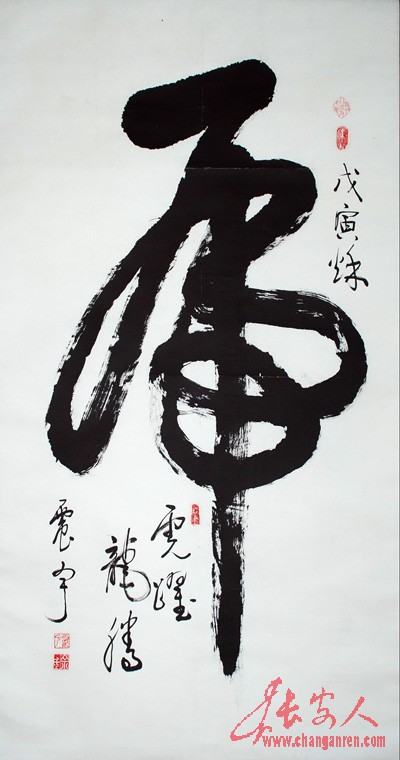 戊寅秋
虎
虎躍
龍騰
震宇
长安人
www.changanren.com